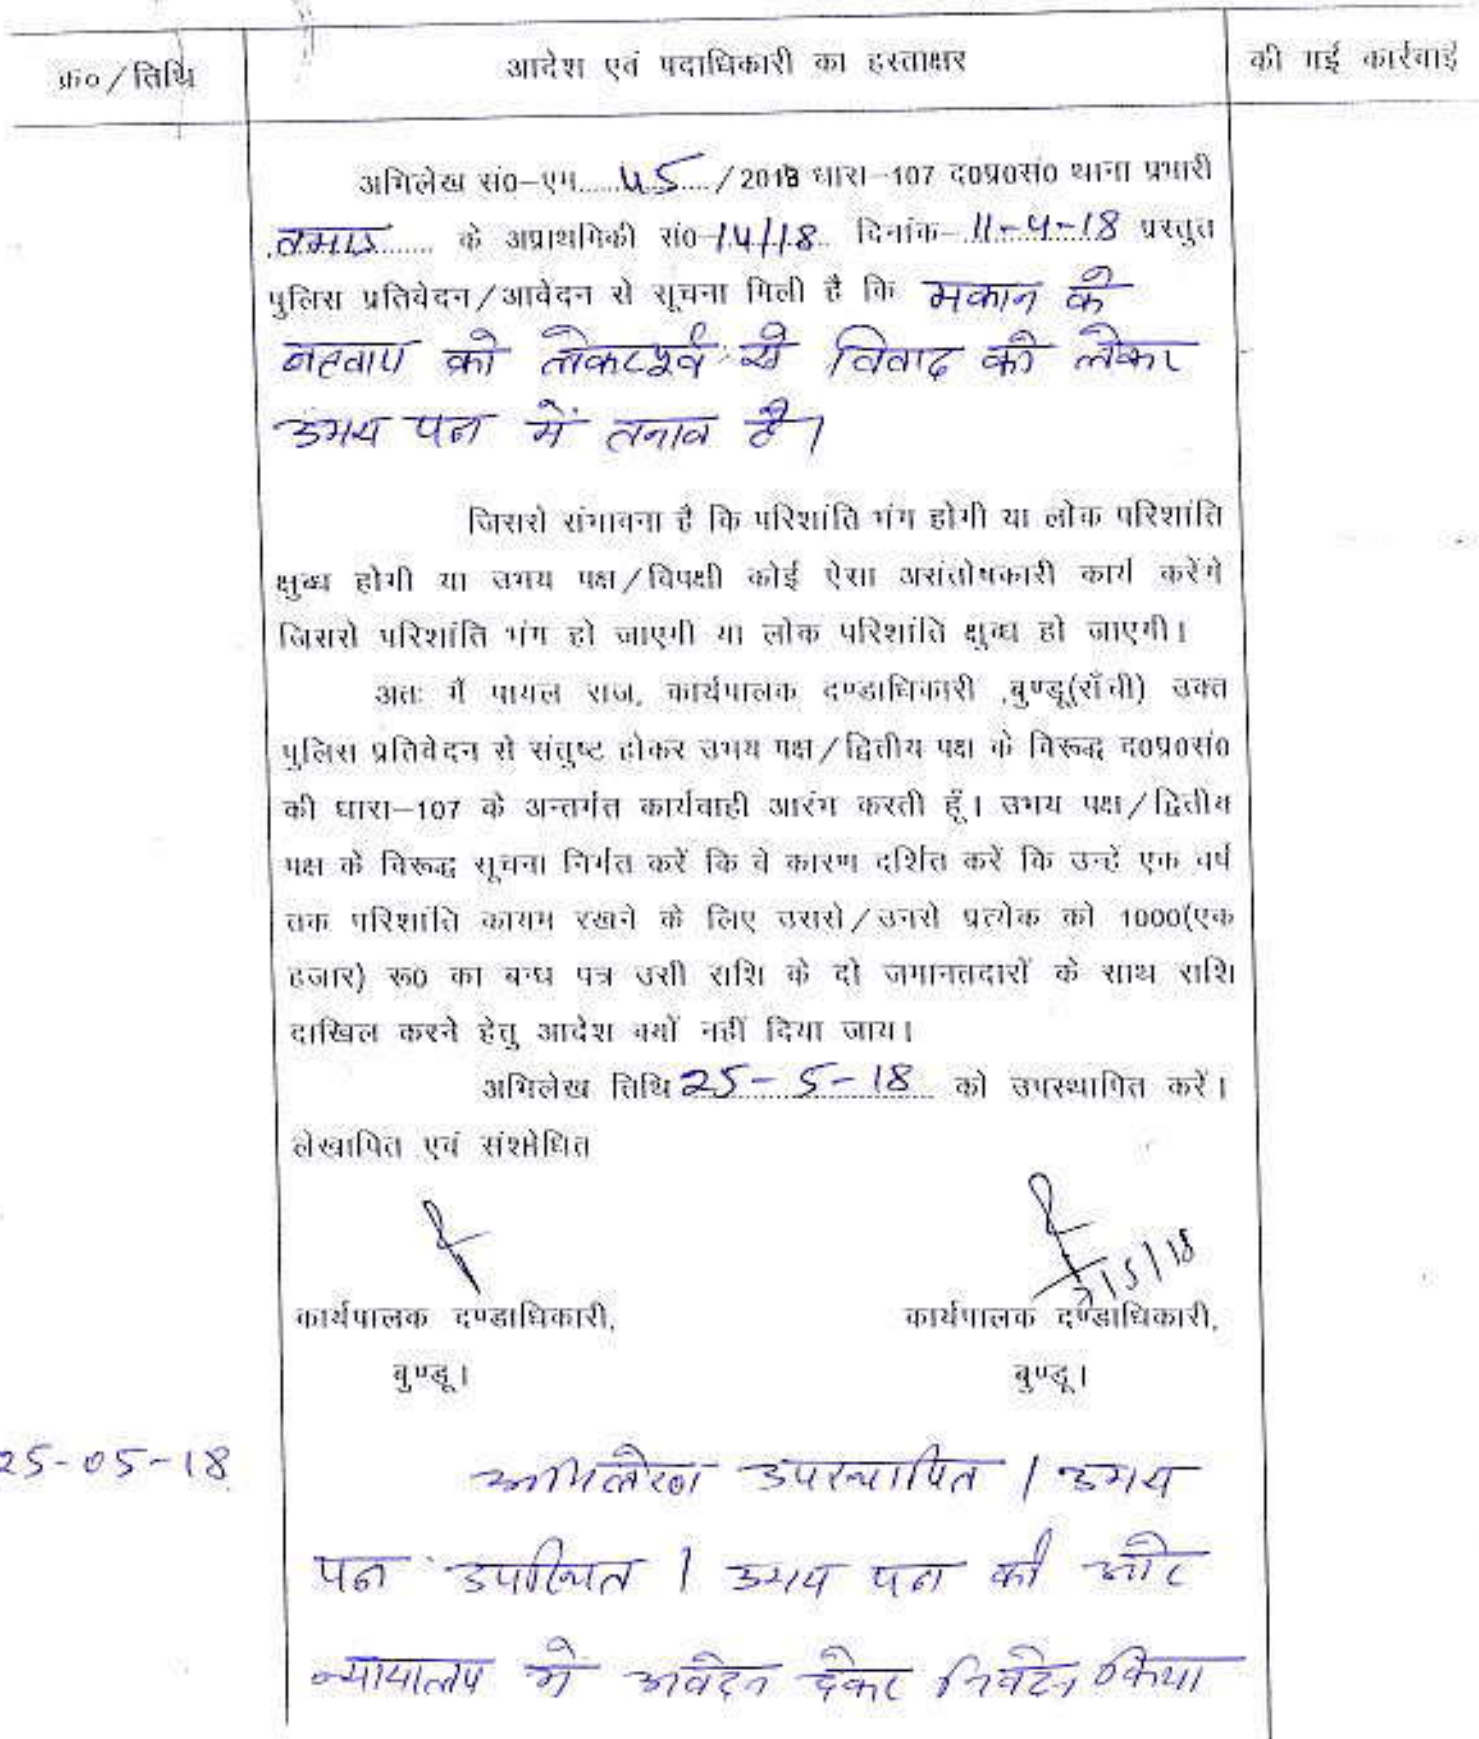 क्र०/तिथि
आदेश एवं पदाधिकारी का हस्ताक्षर
की गई कार्रवाई
अभिलेख सं०-एम......45..../2018 धारा-107 द०प्र०सं० थाना प्रभारी
तमाड़...... के अप्राथमिकी सं०-14/18.. दिनांक-11-4-18 प्रस्तुत
पुलिस प्रतिवेदन/आवेदन से सूचना मिली है कि मकान के
को लेकर पूर्व से विवाद को लेकर
उभय पक्ष में तनाव है।
जिससे संभावना है कि परिशांति भंग होगी या लोक परिशांति
क्षुब्ध होगी या उभय पक्ष/विपक्षी कोई ऐसा असंतोषकारी कार्य करेंगे
जिससे परिशांति भंग हो जाएगी या लोक परिशांति क्षुब्ध हो जाएगी।
अतः मैं पायल राज, कार्यपालक दण्डाधिकारी ,बुण्डू(राँची) उक्त
पुलिस प्रतिवेदन से संतुष्ट होकर उभय पक्ष/द्वितीय पक्ष के विरूद्ध द०प्र०सं०
की धारा-107 के अन्तर्गत कार्यवाही आरंभ करती हूँ। उभय पक्ष/द्वितीय
पक्ष के विरूद्ध सूचना निर्गत करें कि वे कारण दर्शित करें कि उन्हें एक वर्ष
तक परिशांति कायम रखने के लिए उससे/उनसे प्रत्येक को 1000(एक
हजार) रू० का बन्ध पत्र उसी राशि के दो जमानतदारों के साथ राशि
दाखिल करने हेतु आदेश क्यों नहीं दिया जाय।
अभिलेख तिथि 25-5-18 को उपस्थापित करें।
लेखापित एवं संशोधित
कार्यपालक दण्डाधिकारी,
बुण्डू।
/5/18
कार्यपालक दण्डाधिकारी,
बुण्डू।
25-05-18
अभिलेख उपस्थापित। उभय
पक्ष उपस्थित। उभय पक्ष की ओर
न्यायालय में आवेदन देकर निवेदन किया